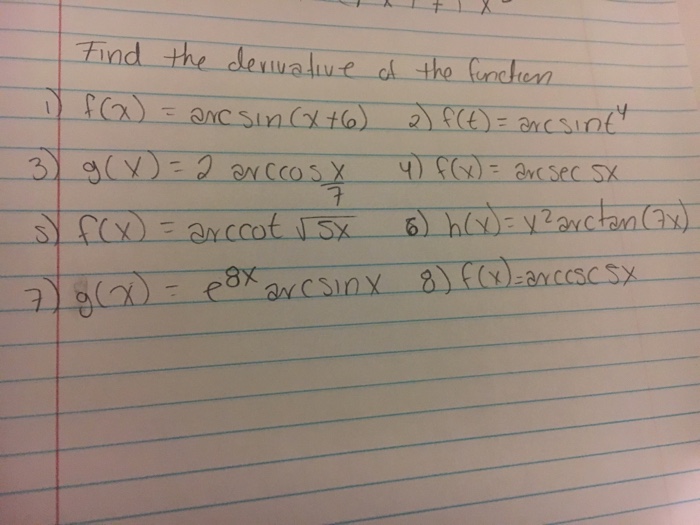 Find the derivative of the function
1) f(x) = arcsin(x+6) 2) f(t) = arcsint⁴
3) g(x) = 2 arccos x/7 4) f(x) = arcsec 5x
5) f(x) = arccot √5x 6) h(x) = x² arctan(7x)
7) g(x) = e^8x arcsinx 8) f(x) = arccsc 5x